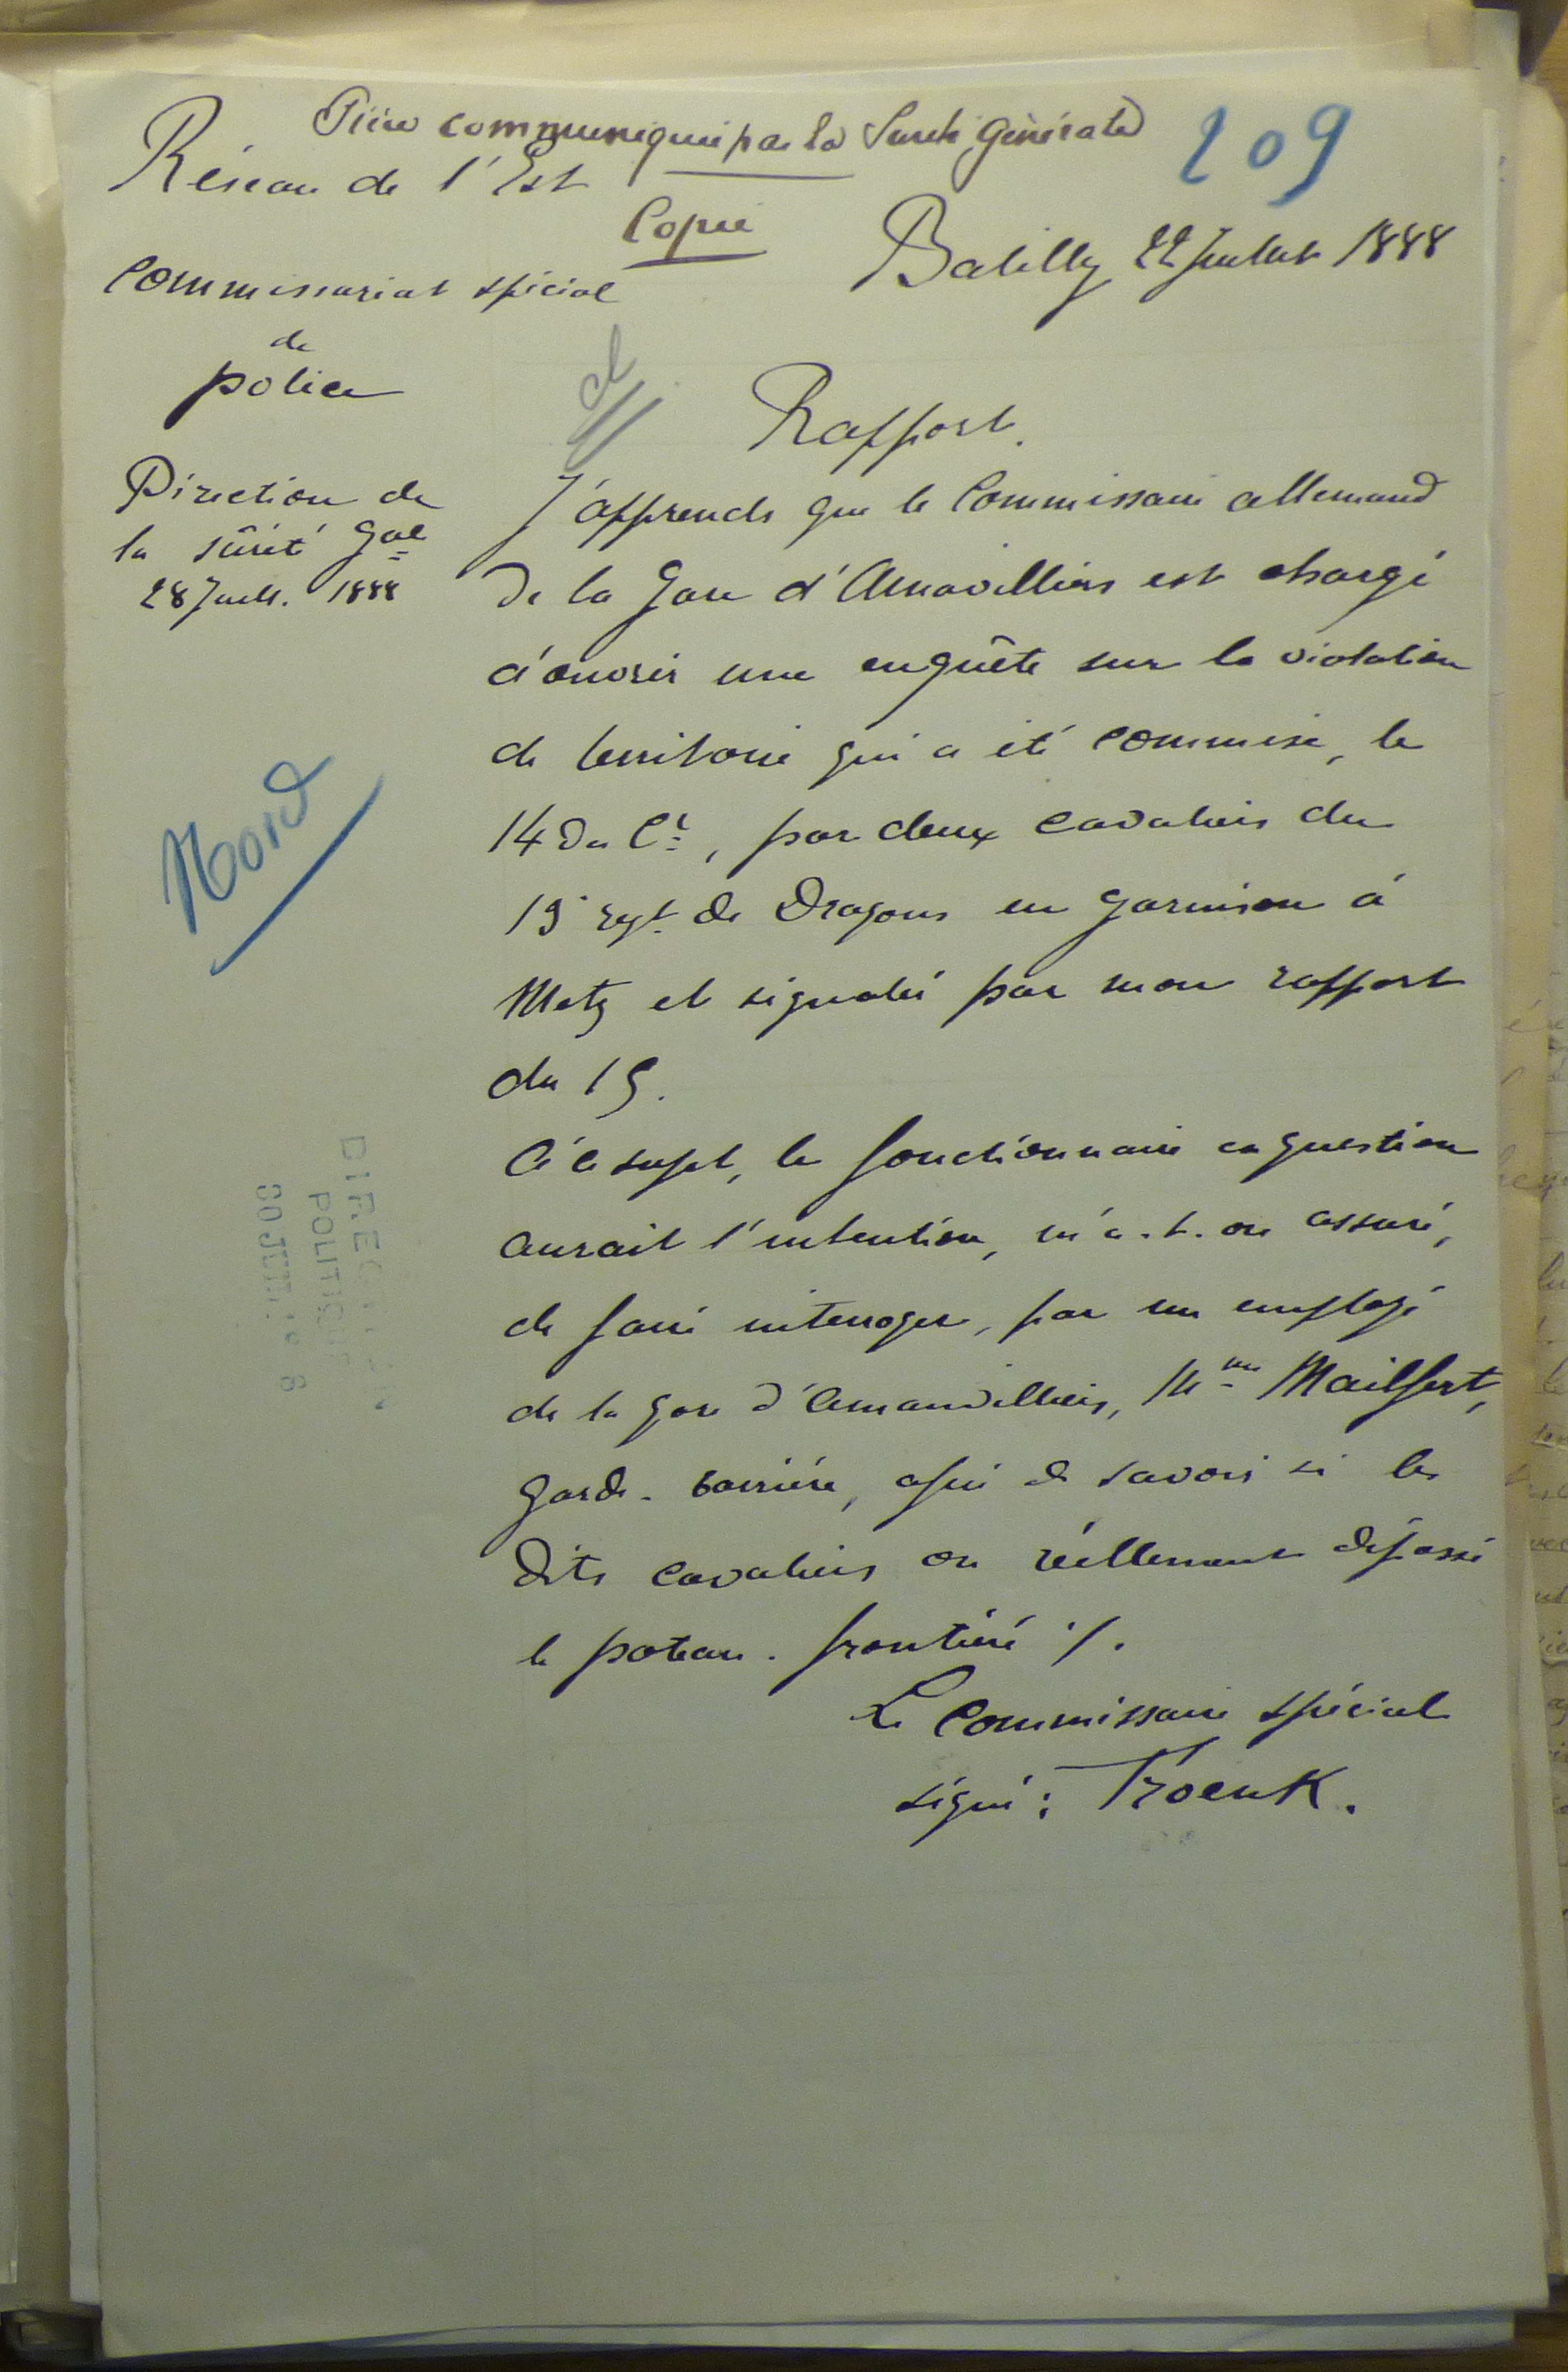 Pièce communiquée par la Sureté Générale
209
Réseau de l'Est
Copie
Batilly 22 Juillet 1888
Commissariat spécial
de
police
Rapport.
Direction de
la sûreté Gale
28 Juill. 1888
Nord
J'apprends que le Commissaire allemand
de la Gare d'Amavilliers est chargé
d'ouvrir une enquête sur la violation
de territoire qui a été commise, le
14 du Ct, par deux cavaliers du
19e regt de Dragons en garnison à
Metz et signalé par mon rapport
du 15.
A ce sujet, le fonctionnaire en question
aurait l'intention, m'a-t-on assuré,
de faire interroger, par un employé
de la gare d'Amanvilliers, Mme Mailfert,
garde-barrière, afin de savoir si les
dits cavaliers on réellement dépassé
le poteau-frontière ./.
Le Commissaire spécial
signé : Troenk.
DIRECTION
POLITIQUE